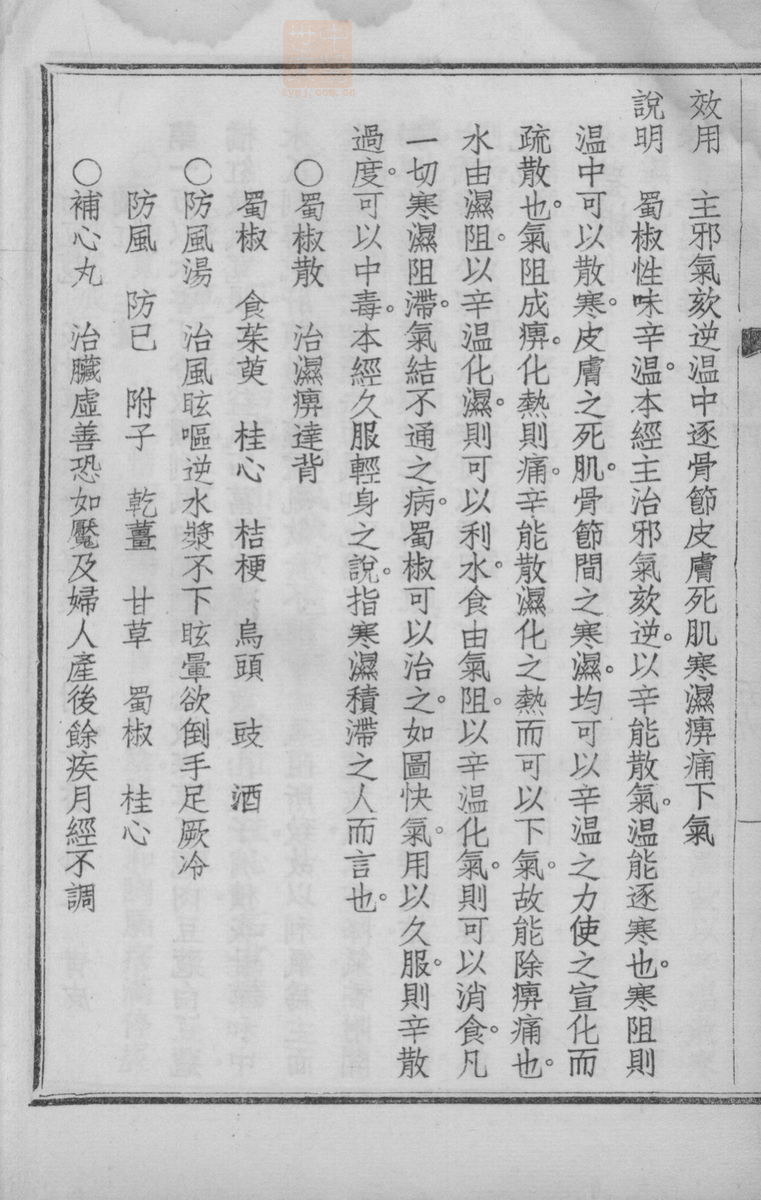 效用　主邪氣欬逆温中逐骨節皮膚死肌寒濕痹痛下氣
說明　蜀椒性味辛温。本經主治邪氣欬逆。以辛能散氣。温能逐寒也。寒阻則
温中可以散寒。皮膚之死肌。骨節間之寒濕。均可以辛温之力使之宣化而
疏散也。氣阻成痹。化熱則痛。辛能散濕化之熱而可以下氣。故能除痹痛也。
水由濕阻。以辛温化濕。則可以利水。食由氣阻。以辛温化氣。則可以消食。凡
一切寒濕阻滯。氣結不通之病。蜀椒可以治之。如圖快氣。用以久服。則辛散
過度。可以中毒。本經久服輕身之說。指寒濕積滯之人而言也。
○蜀椒散　治濕痹達背
蜀椒　食茱萸　桂心　桔梗　烏頭　豉　酒
○防風湯　治風眩嘔逆水漿不下眩暈欲倒手足厥冷
防風　防已　附子　乾薑　甘草　蜀椒　桂心
○補心丸　治臟虛善恐如魘及婦人產後餘疾月經不調